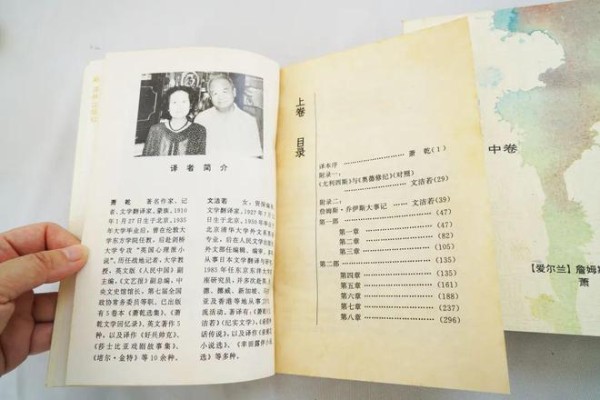 译者简介
萧 乾 著名作家、记
者、文学翻译家。蒙族。1910
年1月27日生于北京。1935
年大学毕业后，曾在伦敦大
学东方学院任教，后赴剑桥
大学专攻“英国心理派小
说”。历任战地记者，大学教
授，英文版《人民中国》副
主编，《文艺报》副总编，中
央文史馆馆长、第七届全国
政协常务委员等职。已出版
有5卷本《萧乾选集》、《萧
乾文学回忆录》，英文著作5
种，以及译作《好兵帅克》、
《莎士比亚戏剧故事集》、
《培尔·金特》等10余种。
文洁若 女，
文学翻译家。1927年7月
日生于北京。1950年毕业于
北京清华大学外文系英
专业，后在人民文学出版社
外文部任编辑、编审。
从事日本文学翻译与研究。
1985年任东京东洋大学
座研究员，并多次赴英、
德、挪威、新加坡、
亚及香港等地从事
流活动。著译有：《萧乾
洁若》（纪实文学）、
话传说》，以及译作
小说选》、
选》等多种。
上卷 目录
译本序 萧 乾(1)
附录一、
《尤利西斯》与《奥德修纪》(对照)
文洁若(29)
附录二、
詹姆斯·乔伊斯大事记 文洁若(39)
第一部 (47)
第一章 (47)
第二章 (83)
第三章 (105)
第二部 (135)
第四章 (135)
第五章 (161)
第六章 (188)
第七章 (237)
第八章 (296)
中卷
【爱尔兰】詹姆
萧